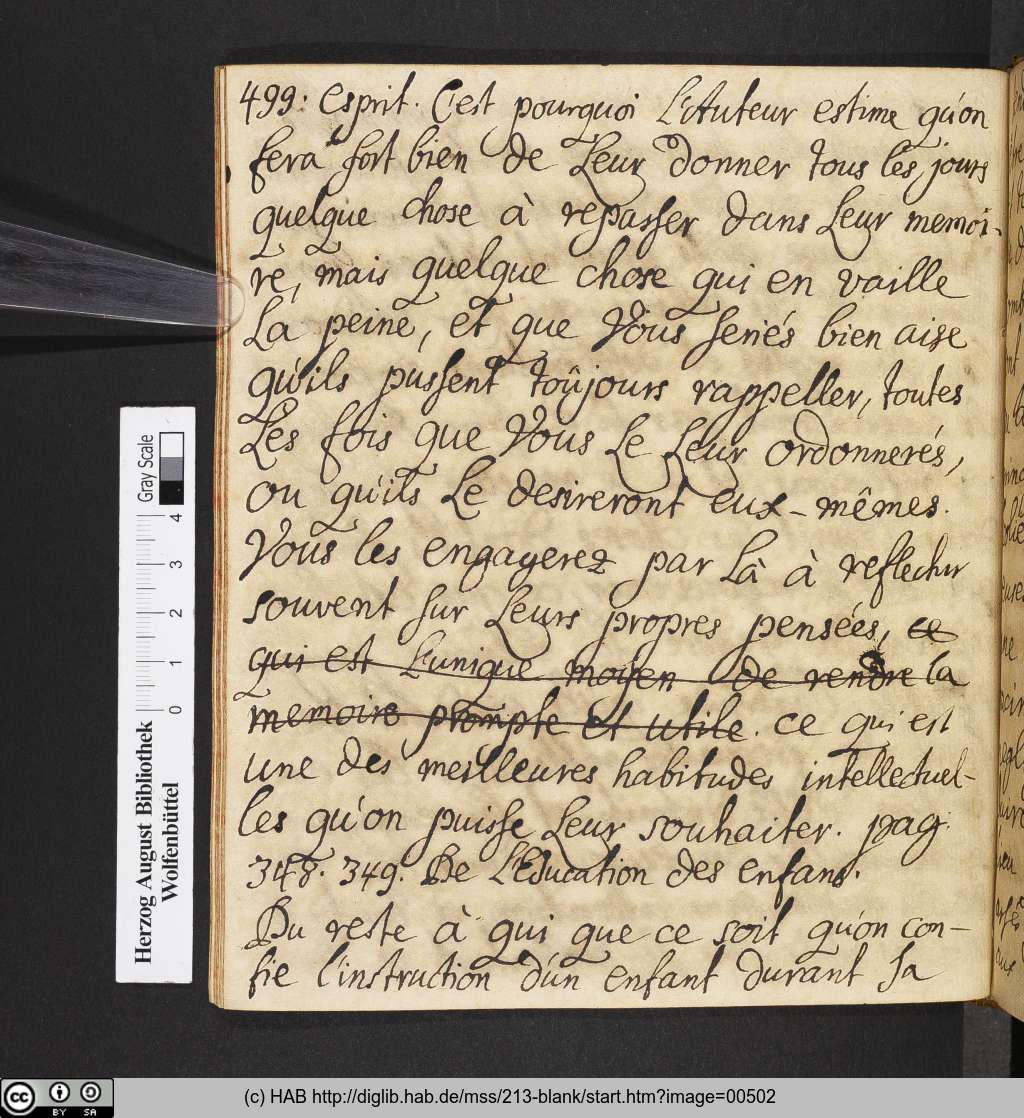 499: Esprit. C'est pourquoi L'Auteur estime qu'on
fera fort bien de Leur donner tous les jours
quelque chose à repasser dans Leur memoi-
re, mais quelque chose qui en vaille
La peine, et que Vous seriés bien aise
qu'ils pussent toûjours rappeller, toutes
Les fois que Vous Le Leur ordonnerés,
ou qu'ils Le desireront eux-mêmes.
Vous les engagerez par Là à reflechir
souvent sur Leurs propres pensées, ce
qui est L'unique moyen de rendre la
memoire prompte et utile. ce qui est
une des meilleures habitudes intellectuel-
les qu'on puisse Leur souhaiter. pag.
348. 349. De L'Education des enfans.
Du reste à qui que ce soit qu'on con-
fie l'instruction d'un enfant durant sa
Herzog August Bibliothek
Wolfenbüttel
Gray Scale
0 1 2 3 4
cc BY SA
(c) HAB http://diglib.hab.de/mss/213-blank/start.htm?image=00502